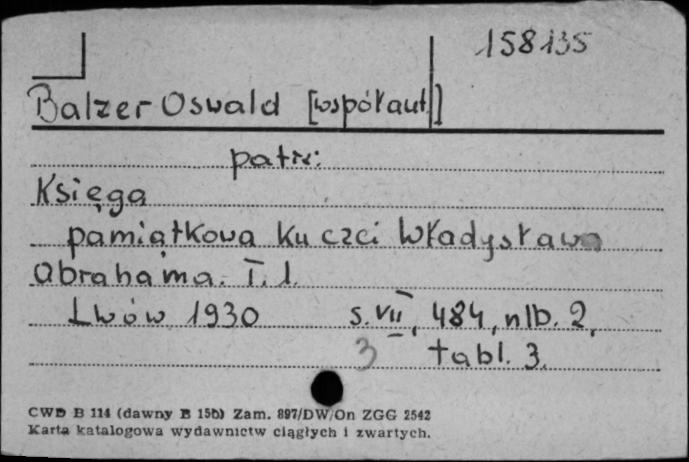 158135
Balzer Oswald [współaut.]
patrz:
Księga
pamiątkowa ku czci Władysława
Abrahama. T. 1.
Lwów 1930 s. VII, 484, nlb. 2,
3 tabl. 3.
CWD B 114 (dawny B 15b) Zam. 897/DW/On ZGG 2542
Karta katalogowa wydawnictw ciągłych i zwartych.